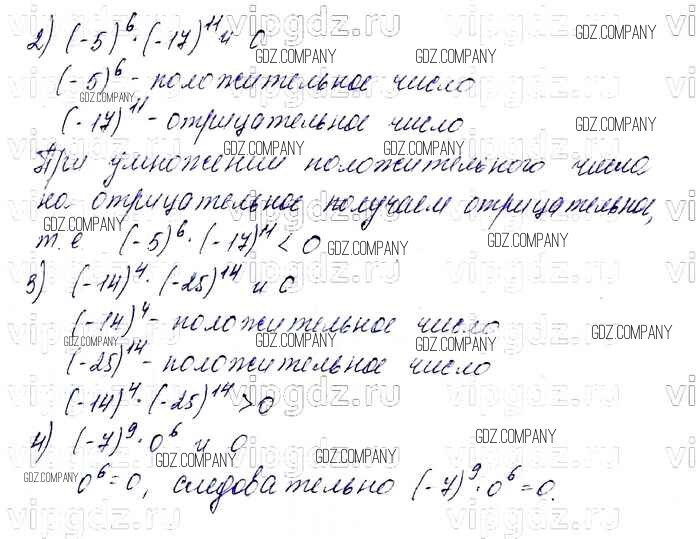 2) (-5)⁶·(-17)¹¹ и 0
(-5)⁶ - положительное число
(-17)¹¹ - отрицательное число
При умножении положительного числа
на отрицательное получаем отрицательное,
т.е (-5)⁶·(-17)¹¹ < 0
3) (-14)⁴·(-25)¹⁴ и 0
(-14)⁴ - положительное число
(-25)¹⁴ - положительное число
(-14)⁴·(-25)¹⁴ > 0
4) (-7)⁹·0⁶ и 0
0⁶ = 0, следовательно (-7)⁹·0⁶ = 0.